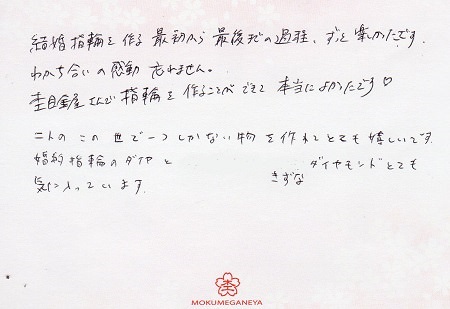 結婚指輪を作る最初から最後までの過程、ずっと楽しかったです。
わかち合いの感動忘れません。
杢目金屋さんで指輪を作ることができて本当によかったです♡
二人のこの世で一つしかない物を作れてとても嬉しいです。
婚約指輪のダイヤと きずなダイヤモンドとても
気に入っています。
杢
MOKUMEGANEYA